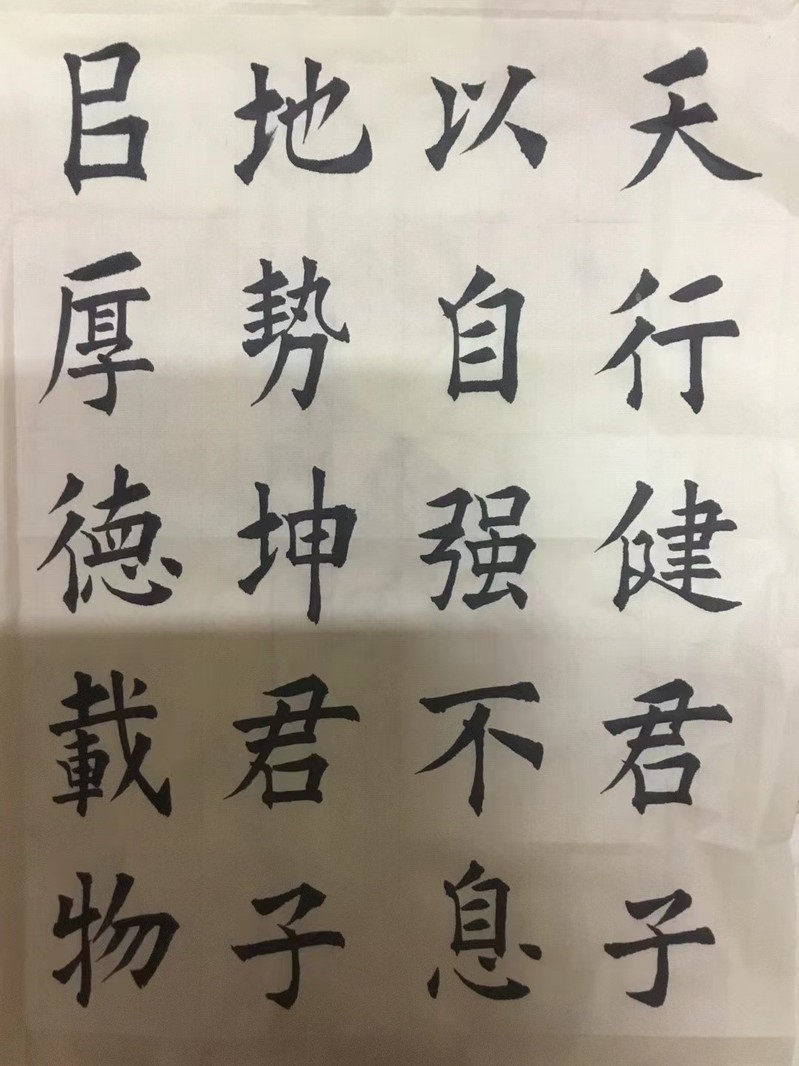 天行健君子
以自强不息
地勢坤君子
㠯厚德載物